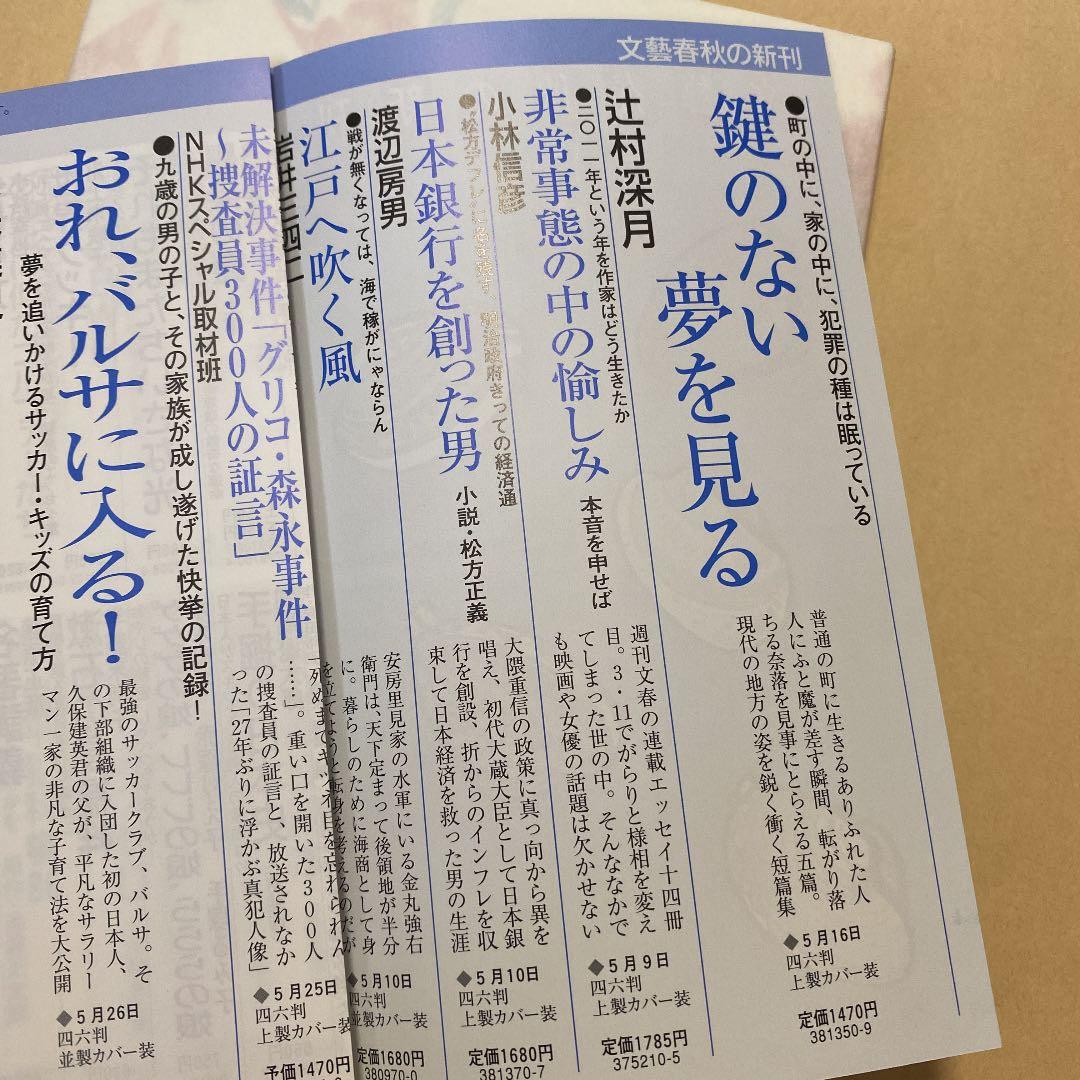 文藝春秋の新刊
●町の中に、家の中に、犯罪の種は眠っている
鍵のない
夢を見る
辻村深月
普通の町に生きるありふれた人
人にふと魔が差す瞬間、転がり落
ちる奈落を見事にとらえる五篇。
現代の地方の姿を鋭く衝く短篇集
◆5月16日
四六判
上製カバー装
定価1470円
381350-9
●二〇一一年という年を作家はどう生きたか
非常事態の中の愉しみ
本音を申せば
小林信彦
週刊文春の連載エッセイ十四冊
目。3・11でがらりと様相を変え
てしまった世の中。そんななかで
も映画や女優の話題は欠かせない
◆5月9日
四六判
上製カバー装
定価1785円
375210-5
●“松方デフレ”に名を残す、明治政府きっての経済通
日本銀行を創った男
小説・松方正義
渡辺房男
大隈重信の政策に真っ向から異を
唱え、初代大蔵大臣として日本銀
行を創設、折からのインフレを収
束して日本経済を救った男の生涯
◆5月10日
四六判
上製カバー装
定価1680円
381370-7
●戦が無くなっては、海で稼がにゃならん
江戸へ吹く風
岩井三四二
安房里見家の水軍にいる金丸強右
衛門は、天下定まって後領地が半分
に。暮らしのために海商として身
を立てようと転身を考えるのだが
◆5月10日
四六判
並製カバー装
定価1680円
380970-0
未解決事件「グリコ・森永事件
～捜査員300人の証言」
NHKスペシャル取材班
「死ぬまでキツネ目を忘れられん
……」。重い口を開いた300人
の捜査員の証言と、放送されなか
った「27年ぶりに浮かぶ真犯人像」
◆5月25日
四六判
上製カバー装
予価1470円
●九歳の男の子と、その家族が成し遂げた快挙の記録！
おれ、バルサに入る！
夢を追いかけるサッカー・キッズの育て方
最強のサッカークラブ、バルサ。そ
の下部組織に入団した初の日本人、
久保建英君の父が、平凡なサラリー
マン一家の非凡な子育て法を大公開
◆5月26日
四六判
並製カバー装